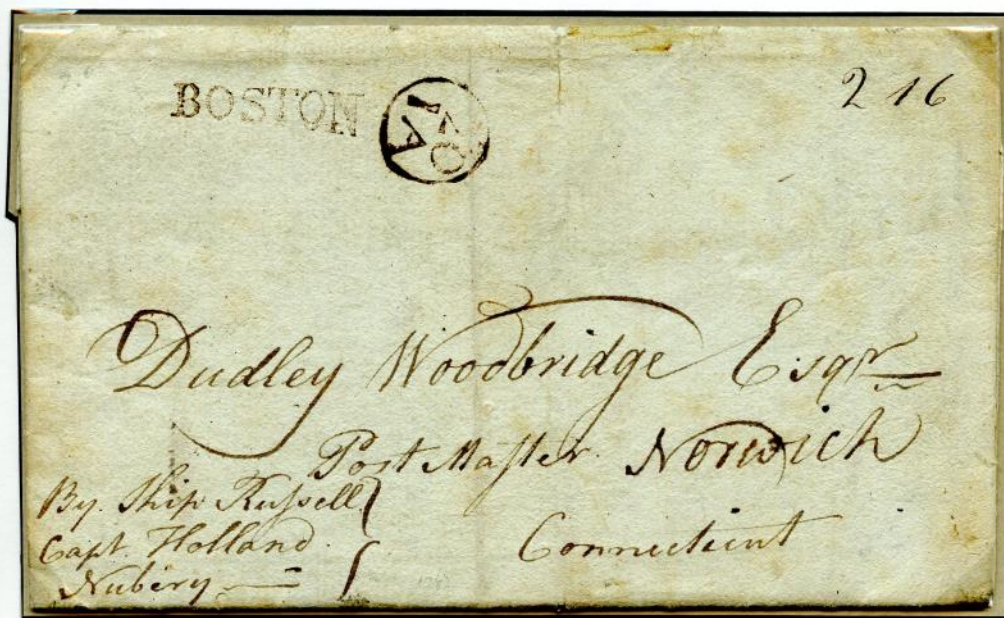 BOSTON
2 16
Dudley Woodbridge Esqr
Post Maſter Norwich
Connecticut
By Ship Ruſsell
Capt. Holland
Nubery